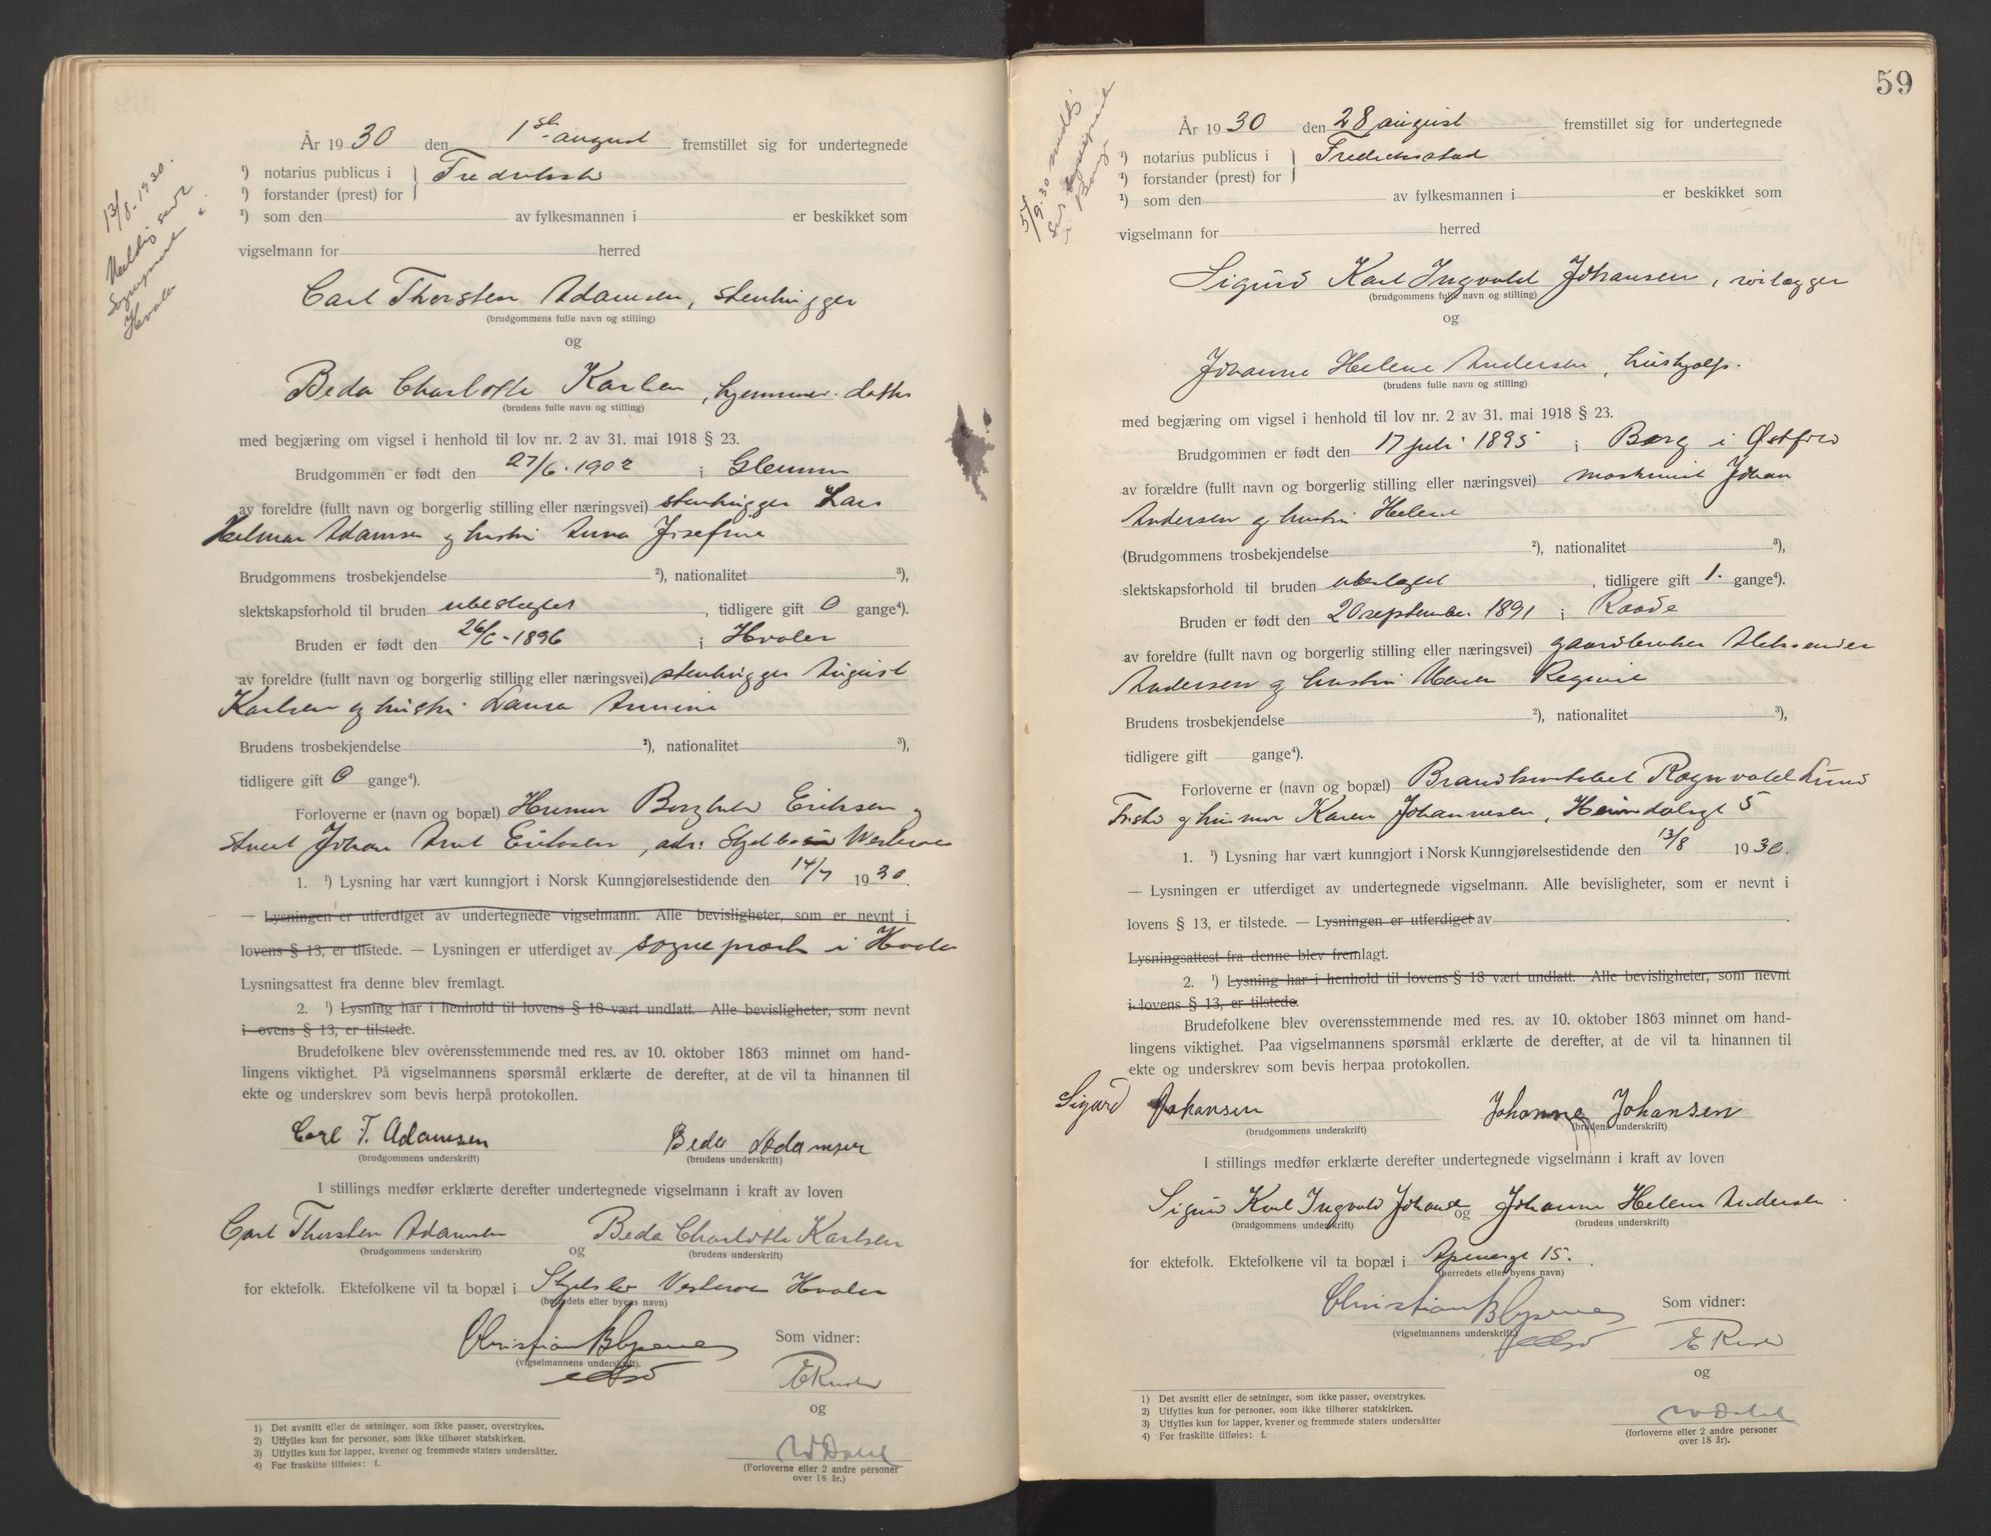 13/8-1930.
Meldig sendt
Sogneprest i
Hvaler
År 1930 den 1ste august fremstillet sig for undertegnede
¹) notarius publicus i } Fredrikstad
¹) forstander (prest) for
¹) som den av fylkesmannen i er beskikket som
vigselmann for herred
Carl Thorsten Adamsen, stenhugger
(brudgommens fulle navn og stilling)
og
Beda Charlotte Karlsen, hjemmev. datter
(brudens fulle navn og stilling)
med begjæring om vigsel i henhold til lov nr. 2 av 31. mai 1918 § 23.
Brudgommen er født den 27/6-1902 i Glemmen
av foreldre (fullt navn og borgerlig stilling eller næringsvei) stenhugger Lars
Helmar Adamsen og hustru Anna Josefine
Brudgommens trosbekjendelse ²), nationalitet ³),
slektskapsforhold til bruden ubeslegtet, tidligere gift 0 gange⁴).
Bruden er født den 26/6-1896 i Hvaler
av foreldre (fullt navn og borgerlig stilling eller næringsvei) stenhugger August
Karlsen og hustru Laura Annine
Brudens trosbekjendelse ²), nationalitet ³),
tidligere gift 0 gange⁴).
Forloverne er (navn og bopæl) Borghild Eriksen og
Johan Arnt Eriksen, adr: Vesterøen
1. ¹) Lysning har vært kunngjort i Norsk Kunngjørelsestidende den 14/7 1930.
— Lysningen er utferdiget av undertegnede vigselmann. Alle bevisligheter, som er nevnt i
lovens § 13, er tilstede. — Lysningen er utferdiget av sogneprest i Hvaler
Lysningsattest fra denne blev fremlagt.
2. ¹) Lysning har i henhold til lovens § 18 vært undlatt. Alle bevisligheter, som nevnt
i ovens § 13, er tilstede.
Brudefolkene blev overensstemmende med res. av 10. oktober 1863 minnet om hand-
lingens viktighet. På vigselmannens spørsmål erklærte de derefter, at de vil ta hinannen til
ekte og underskrev som bevis herpå protokollen.
Carl T. Adamsen Beda Adamsen
(brudgommens underskrift) (brudens underskrift)
I stillings medfør erklærte derefter undertegnede vigselmann i kraft av loven
Carl Thorsten Adamsen og Beda Charlotte Karlsen
(brudgommens underskrift) (brudens underskrift)
for ektefolk. Ektefolkene vil ta bopæl i Vesterøen Hvaler
(herredets eller byens navn)
Christian B Som vidner:
(vigselmannens underskrift).
E Ruud
og
(Forloverne eller 2 andre personer
over 18 år.)
1) Det avsnitt eller de setninger, som ikke passer, overstrykes.
2) Utfylles kun for personer, som ikke tilhører statskirken.
3) Utfylles kun for lapper, kvener og fremmede staters undersåtter.
4) For fraskilte tilføies: f.
59
5/9.30 meddt
sogneprest
i Borge
År 1930 den 28 august fremstillet sig for undertegnede
¹) notarius publicus i } Fredriksstad
¹) forstander (prest) for
¹) som den av fylkesmannen i er beskikket som
vigselmann for herred
Sigurd Karl Ingvald Johansen, rørlægger
(brudgommens fulle navn og stilling)
og
Johanne Helene Andersen, hushjelp.
(brudens fulle navn og stilling)
med begjæring om vigsel i henhold til lov nr. 2 av 31. mai 1918 § 23.
Brudgommen er født den 17 juli 1895 i Borg i Østfold
av forældre (fullt navn og borgerlig stilling eller næringsvei) maskinist Johan
Andersen og hustru Helene
(Brudgommens trosbekjendelse ²), nationalitet ³),
slektskapsforhold til bruden ubeslegtet, tidligere gift 1. gange⁴).
Bruden er født den 20 september 1891 i Raade
av foreldre (fullt navn og borgerlig stilling eller næringsvei) gaardbruker Aleksander
Andersen og hustru Maren Regine
Brudens trosbekjendelse ²), nationalitet ³),
tidligere gift gange⁴).
Forloverne er (navn og bopæl) Brandkonstabel Ragnvald Lund
F.stad og husmor Karen Johannesen, 5
1. ¹) Lysning har vært kunngjort i Norsk Kunngjørelsestidende den 13/8 1930.
— Lysningen er utferdiget av undertegnede vigselmann. Alle bevisligheter, som er nevnt i
lovens § 13, er tilstede. — Lysningen er utferdiget av
Lysningsattest fra denne blev fremlagt.
2. ¹) Lysning har i henhold til lovens § 18 vært undlatt. Alle bevisligheter, som nevnt
i lovens § 13, er tilstede.
Brudefolkene blev overensstemmende med res. av 10. oktober 1863 minnet om hand-
lingens viktighet. Paa vigselmannens spørsmål erklærte de derefter, at de vil ta hinannen til
ekte og underskrev som bevis herpaa protokollen.
Sigurd Johansen Johanne Johansen
(brudgommens underskrift) (brudens underskrift)
I stillings medfør erklærte derefter undertegnede vigselmann i kraft av loven
Sigurd Karl Ingvald Johansen og Johanne Helene Andersen.
(brudgommens underskrift) (brudens underskrift)
for ektefolk. Ektefolkene vil ta bopæl i Apenesgt 15.
(herredets eller byens navn)
Christian B Som vidner:
(vigselmannens underskrift)
E Ruud
og
(forloverne eller 2 andre personer
over 18 år).
1) Det avsnitt eller de setninger, som ikke passer, overstrykes.
2) Utfylles kun for personer, som ikke tilhører statskirken.
3) Utfylles kun for lapper, kvener og fremmede staters undersåtter
4) For fraskilte tilføies: f.